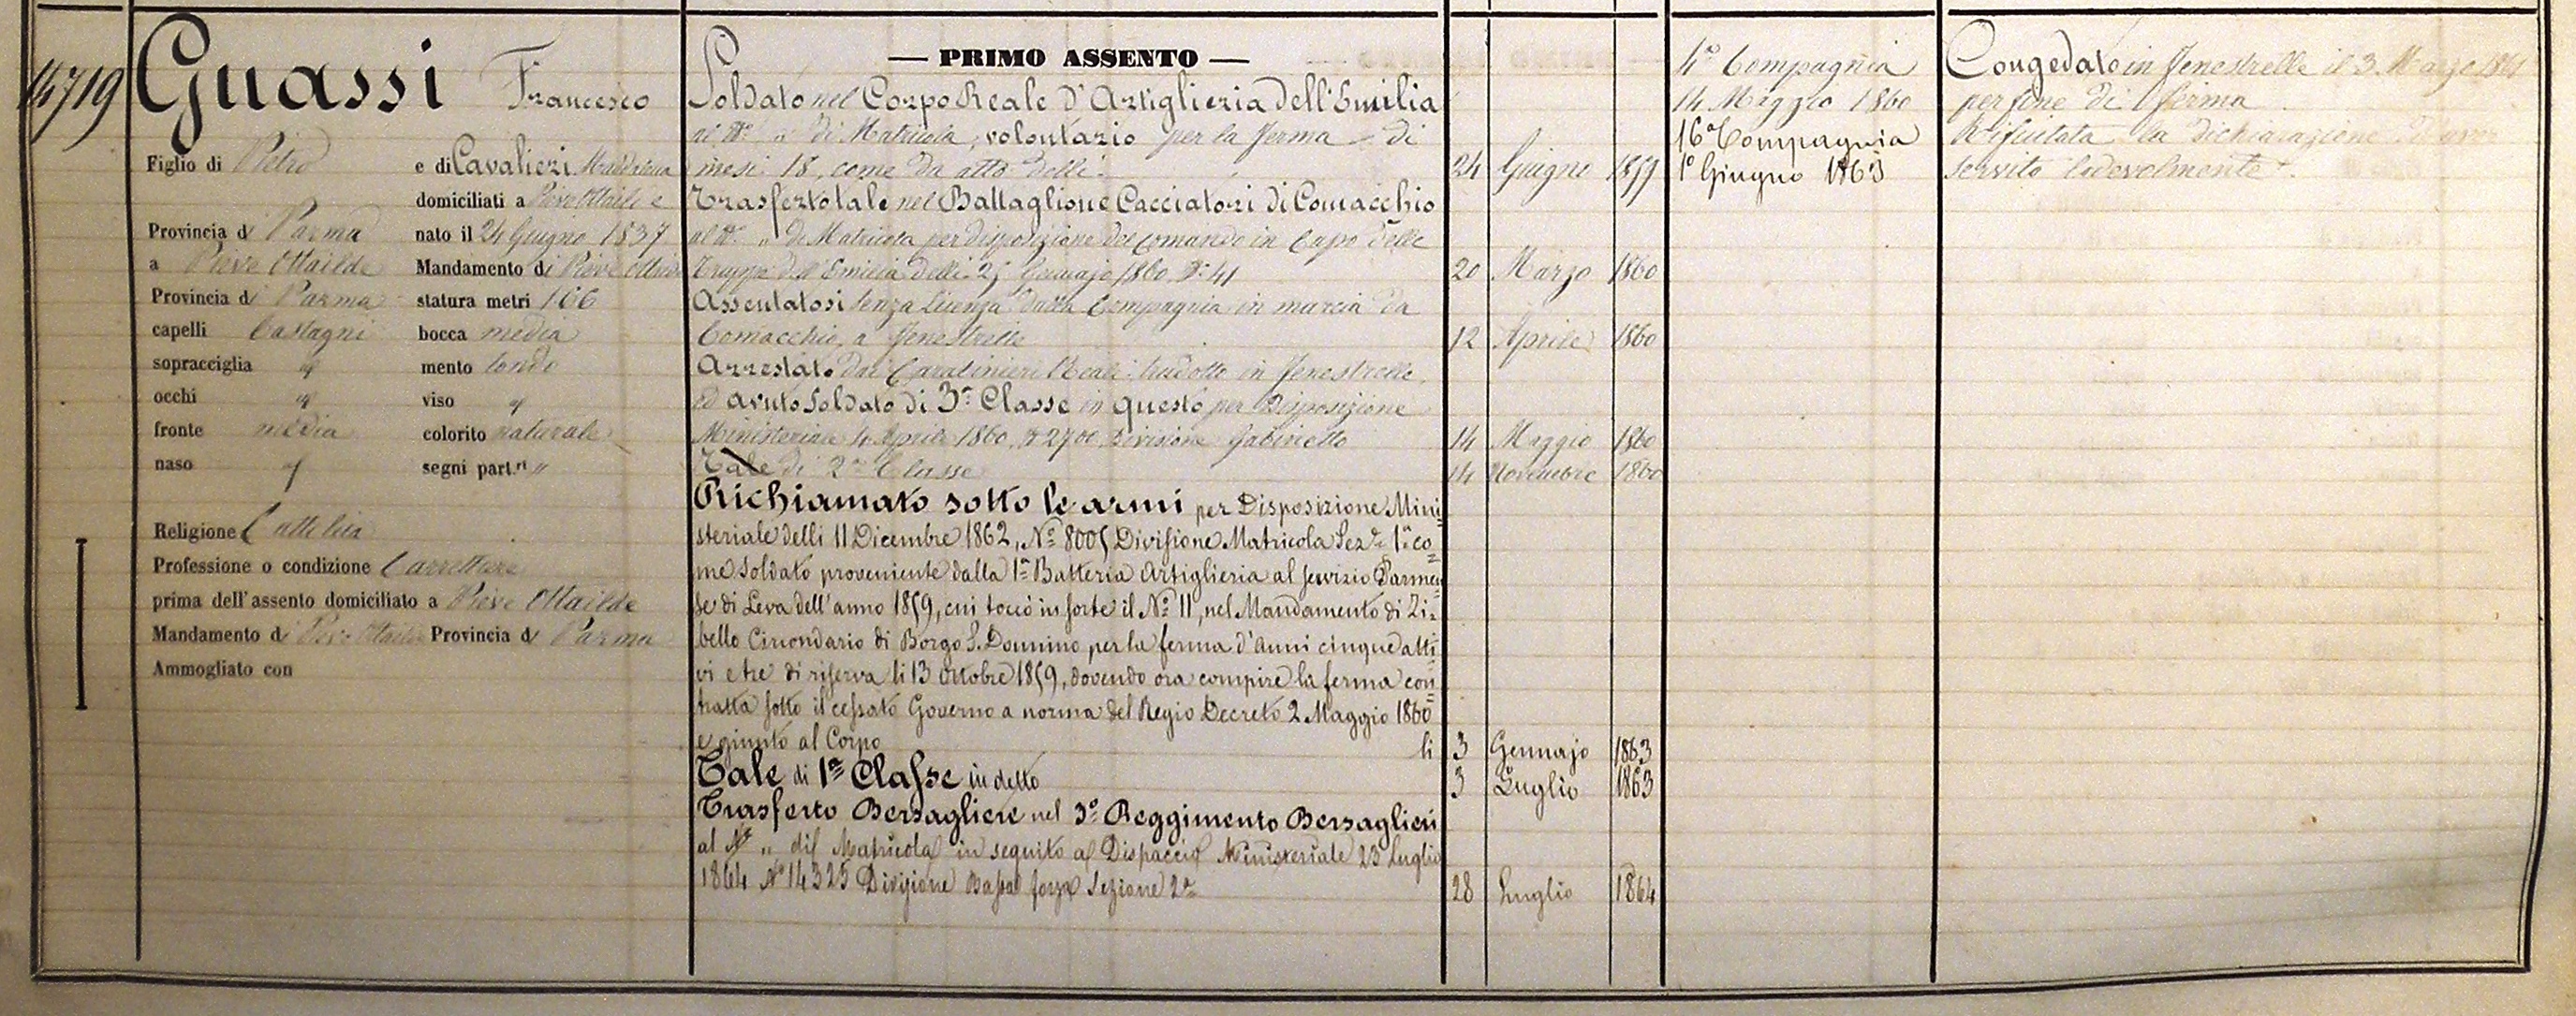 14719
Guassi Francesco
Figlio di Pietro e di Cavalieri Maddalena
domiciliati a Pieve Ottaville
Provincia di Parma nato il 24 Giugno 1837
a Pieve Ottailde Mandamento di Pieve
Provincia di Parma statura metri 166
capelli Castagni bocca media
sopracciglia " mento tondo
occhi " viso "
fronte media colorito naturale
naso " segni part.ri "
Religione Cattolica
Professione o condizione Carrettiere
prima dell'assento domiciliato a Pieve Ottailde
Mandamento di Provincia di Parma
Ammogliato con
— PRIMO ASSENTO —
Soldato nel Corpo Reale d'Artiglieria dell'Emilia
al N.° " di Matricola, volontario per la ferma di
mesi 18, come da atto delli 24 Giugno 1859
Trasferto tale nel Battaglione Cacciatori di Comacchio
al N.° " di Matricola per disposizione del comando in Capo delle
Truppe dell'Emilia delli 25 Gennajo 1860 N.° 41 20 Marzo 1860
Assentatosi senza licenza dalla Compagnia in marcia da
Comacchio a Fenestrelle 12 Aprile 1860
Arrestato dai Carabinieri Reali, tradotto in Fenestrelle,
ed avuto Soldato di 3ª Classe in questo per Disposizione
Ministeriale 4 Aprile 1860 N 2700 Divisione Gabinetto 14 Maggio 1860
Tale di 2ª Classe 14 Novembre 1860
Richiamato sotto le armi per Disposizione Mini=
steriale delli 11 Dicembre 1862, N.° 8005 Divisione Matricola Sez.e 1ª co=
me soldato proveniente dalla 1ª Batteria Artiglieria al servizio Parmen=
se di Leva dell'anno 1859, cui toccò in sorte il N.° 11, nel Mandamento di Zi=
bello Circondario di Borgo S. Donnino per la ferma d'anni cinque atti=
vi e tre di riserva li 13 Ottobre 1859, dovendo ora compire la ferma con=
tratta sotto il cessato Governo a norma del Regio Decreto 2 Maggio 1860
e giunto al Corpo li 3 Gennajo 1863
Tale di 1ª Classe in detto 3 Luglio 1863
Trasferto Bersagliere nel 3.° Reggimento Bersaglieri
al N.° " di Matricola in seguito al Dispaccio Ministeriale 23 Luglio
1864 N° 14325 Divisione Bassa forza Sezione 2ª 28 Luglio 1864
4ª Compagnia
14 Maggio 1860
16ª Compagnia
1° Giugno 1863
Congedato in Fenestrelle il 3 Marzo 1861
per fine di ferma
Rifiutata la dichiarazione d'aver
servito lodevolmente